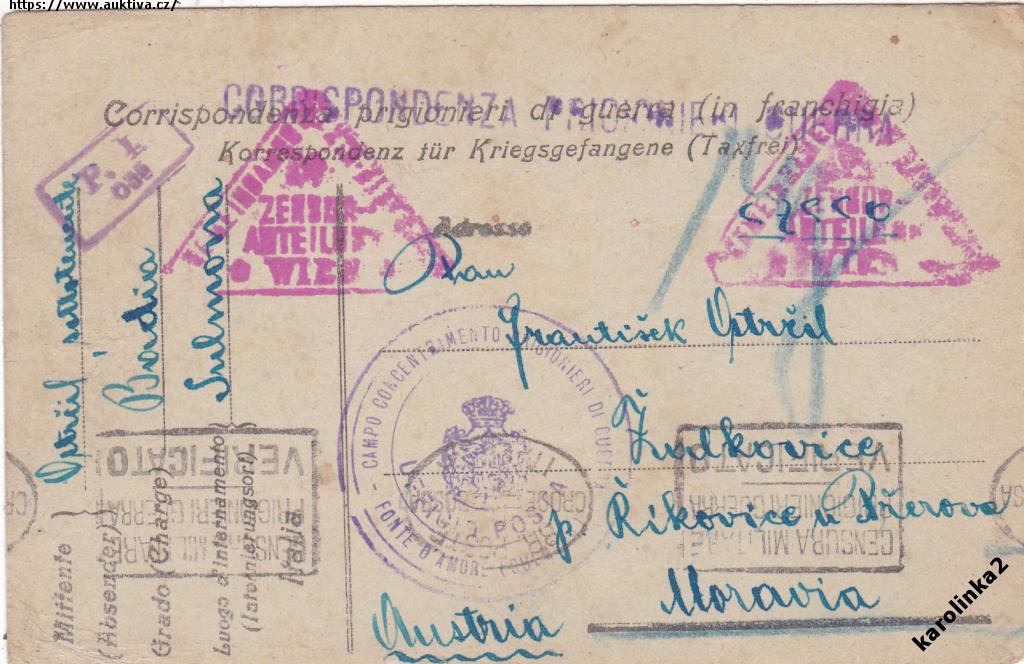 https://www.auktiva.cz/
CORRISPONDENZA PRIGIONIERI GUERRA
Corrispondenza prigionieri di guerra (in franchigia)
Korrespondenz für Kriegsgefangene (Taxfrei)
P. I.
ZENSUR
ABTEILUNG
WIEN
ZENSUR
ABTEILUNG
WIEN
czeco
Adresse
Pan
František Ostrčil
Žudkovice
p. Říkovice u Přerova
Moravia
Austria
Mittente
(Absender)
Ostrčil sottotenente
Grado (Charge)
Badia
Luogo d'internamento
(Internierungsort)
Sulmona
Italia
CAMPO CONCENTRAMENTO PRIGIONIERI DI GUERRA
FONTE D'AMORE
CENSURA MILITARE
PRIGIONIERI GUERRA
VERIFICATO
CENSURA MILITARE
PRIGIONIERI GUERRA
VERIFICATO
karolinka2